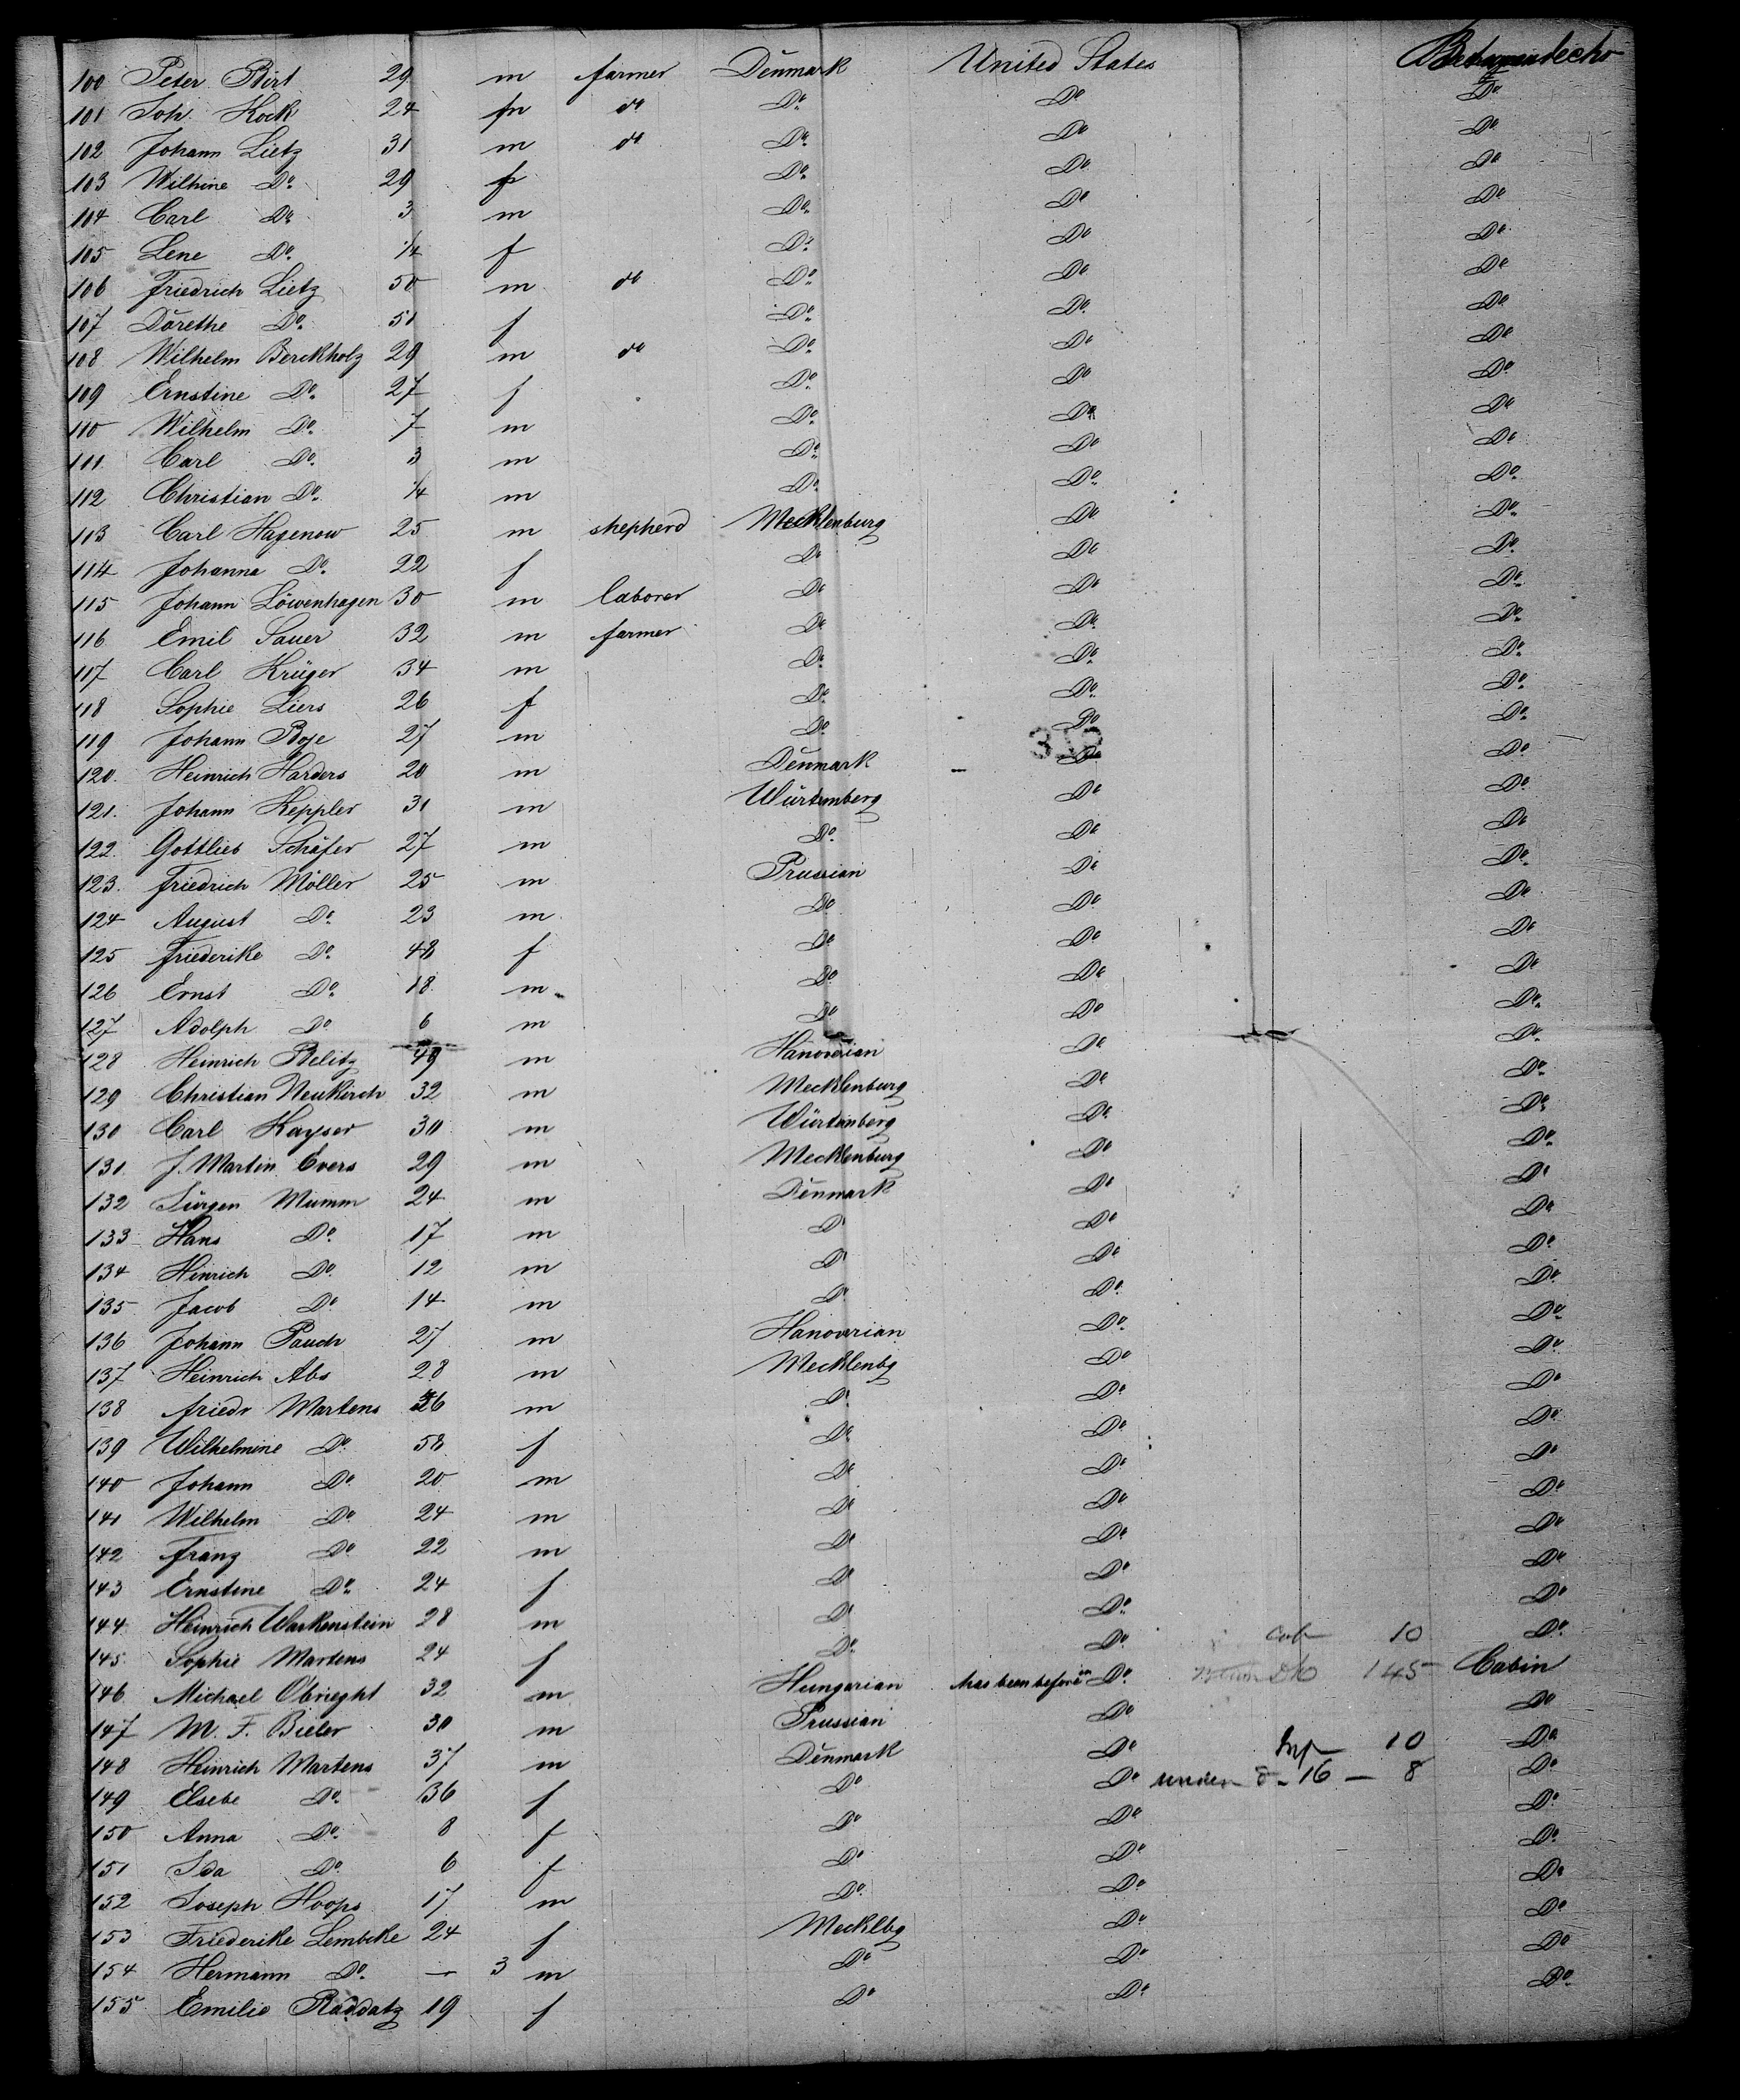 100 Peter Birt 29 m farmer Denmark United States Betweendecks
101 Joh. Kock 24 m do Do. Do Do
102 Johann Lietz 31 m do Do. Do Do
103 Wilhine Do. 29 f Do. Do Do
104 Carl Do. 3 m Do. Do Do
105 Lene Do. 1/4 f Do. Do Do
106 Friedrich Lietz 50 m do Do. Do Do
107 Dorethe Do. 51 f Do. Do. Do
108 Wilhelm Berckholz 29 m do Do. Do Do
109 Ernstine Do. 27 f Do. Do Do
110 Wilhelm Do. 7 m Do. Do. Do
111 Carl Do. 3 m Do. Do Do
112 Christian Do. 1/4 m Do. Do. Do.
113 Carl Hagenow 25 m shepherd Mecklenburg Do Do.
114 Johanna Do. 22 f Do Do Do.
115 Johann Löwenhagen 30 m laborer Do Do Do.
116 Emil Sauer 32 m farmer Do Do. Do.
117 Carl Krüger 34 m Do. Do. Do.
118 Sophie Liers 26 f Do. Do. Do.
119 Johann Boje 27 m Do. Do Do.
120. Heinrich Harders 20 m Denmark Do Do
121. Johann Keppler 31 m Würtemberg Do Do
122. Gottlieb Schäfer 27 m Do. Do Do
123. Friedrich Möller 25 m Prussian Do Do.
124 August Do. 23 m Do Do Do
125 Friederike Do. 48 f Do Do Do
126 Ernst Do. 18 m Do Do Do
127 Adolph Do 6 m Do Do Do.
128 Heinrich Belitz 49 m Hanoverian Do Do.
129 Christian Neukirch 32 m Mecklenburg Do Do.
130 Carl Kayser 30 m Würtemberg Do Do.
131. J. Martin Evers 29 m Mecklenburg Do Do.
132 Jürgen Mumm 24 m Denmark Do Do
133 Hans Do. 17 m Do Do Do
134 Hinrich Do. 12 m Do Do Do
135 Jacob Do 14 m Do. Do. Do.
136 Johann Pauch 27 m Hanoverian Do. Do.
137 Heinrich Abs 28 m Mecklenbg Do Do.
138 Friedr Martens 26 m Do. Do Do.
139 Wilhelmine Do. 58 f Do. Do. Do.
140 Johann Do 20 m Do Do. Do
141 Wilhelm Do 24 m Do Do Do
142 Franz Do. 22 m Do Do. Do
143 Ernstine Do. 24 f Do Do. Do
144 Heinrich Warkenstein 28 m Do Do. Do
145. Sophie Martens 24 f Do. Do. cab 10 Do.
146 Michael Obrieght 32 m Hungarian has been before in Do. 145 Cabin
147 M. F. Bieler 30 m Prussian Do Do
148 Heinrich Martens 37 m Denmark Do Inf 10 Do.
149 Elsebe Do. 36 f Do Do under 8-16 — 8 Do.
150 Anna Do. 8 f Do Do Do.
151 Ida Do. 6 f Do. Do. Do.
152 Joseph Hoops 17 m Do. Do Do
153 Friederike Lembcke 24 f Mecklbg Do Do
154 Hermann Do. — 3 m Do Do Do
155 Emilie Raddatz 19 f Do Do Do.